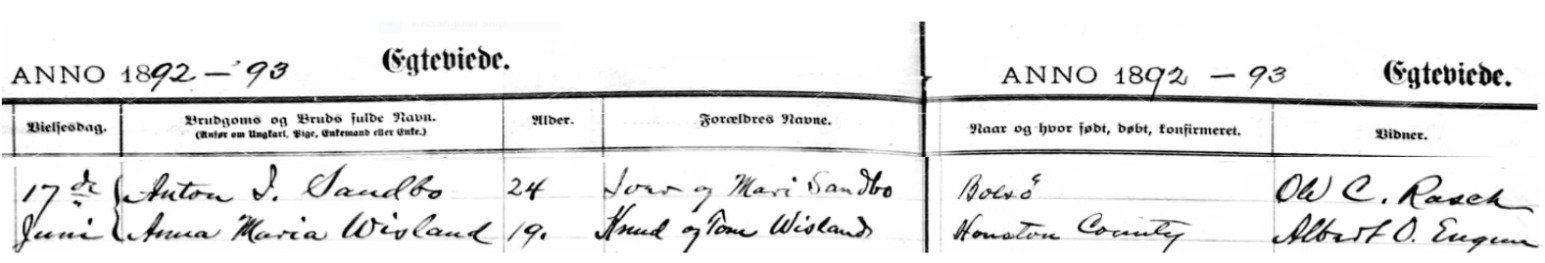 ANNO 1892 - '93 Egteviede. ANNO 1892 - 93 Egteviede.
Vielsesdag. Brudgoms og Bruds fulde Navn. Alder. Forældres Navne. Naar og hvor født, døbt, konfirmeret. Vidner.
(Anfør om Ungkarl, Pige, Enkemand eller Enke.)
17 de Anton I. Sandbo 24 Iver og Mari Sandbo Bolsö Ole C. Rasch
Juni Anna Maria Wisland 19. Knud og Tone Wisland Houston County Albert O.